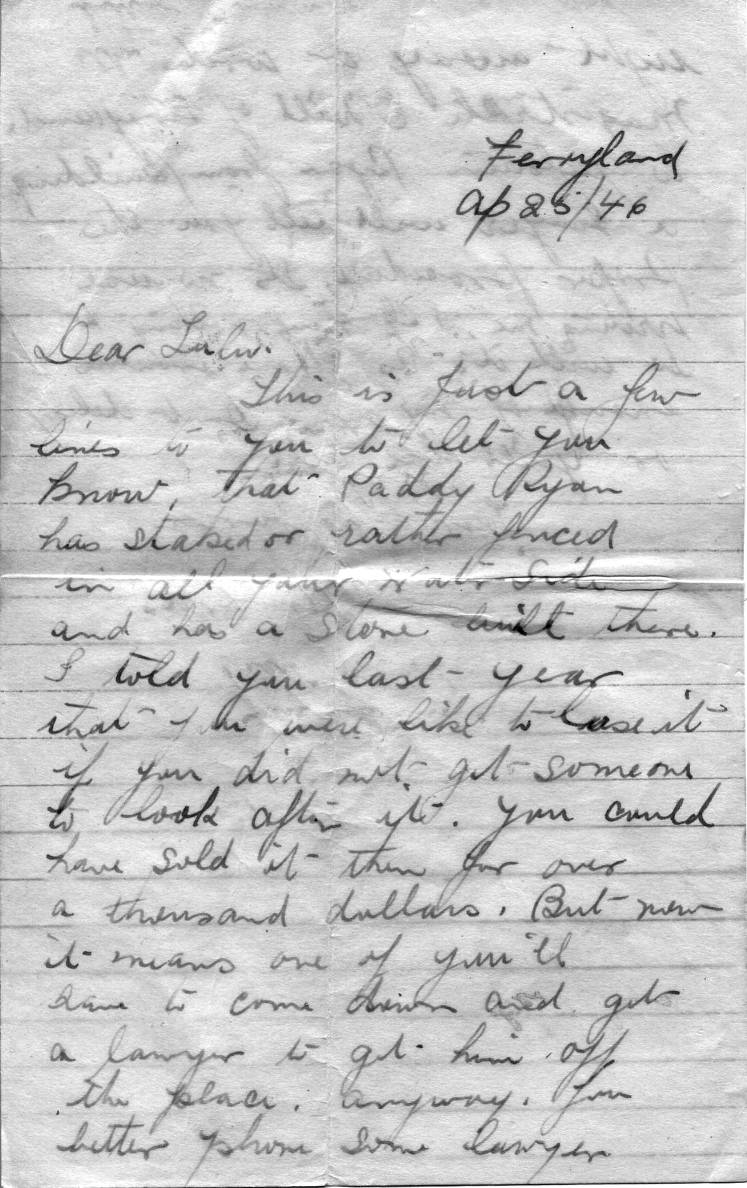 Ferryland
Ap 25/46
Dear Lulu.
This is just a few
lines to you to let you
know, that Paddy Ryan
has staked or rather fenced
in all your water side
and has a store built there.
I told you last year
that you were like to lose it
if you did not get someone
to look after it. You could
have sold it then for over
a thousand dollars. But now
it means one of you'll
have to come down and get
a lawyer to get him off
the place. anyway. You
better phone some lawyer